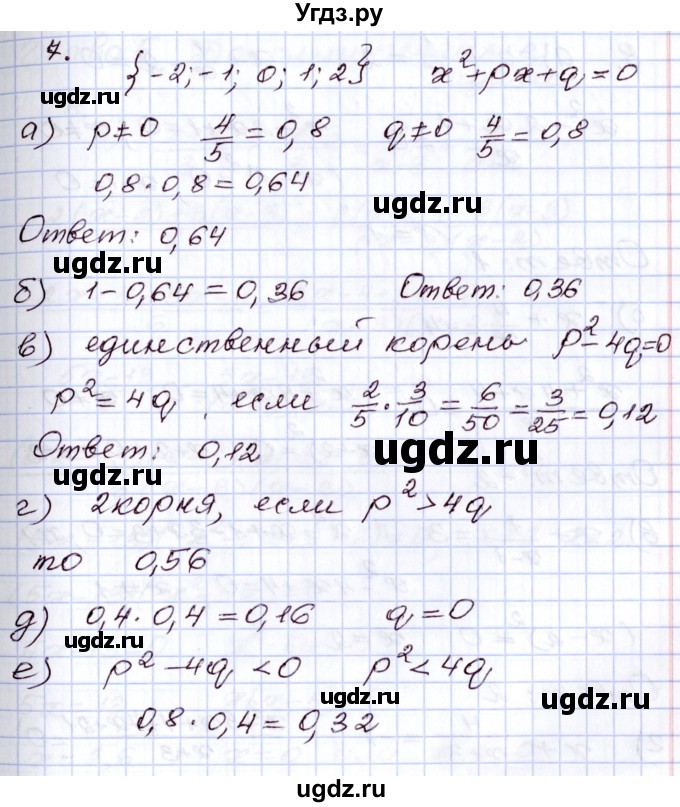 Угдз.ру
7. {-2; -1; 0; 1; 2} x²+px+q=0
а) p≠0 4/5 = 0,8 q≠0 4/5 = 0,8
0,8·0,8=0,64
ugdz.ru
ugdz.ru
Ответ: 0,64
ugdz.ru
б) 1-0,64=0,36 Ответ: 0,36
в) единственный корень p²-4q=0
p²=4q, если 2/5 · 3/10 = 6/50 = 3/25 = 0,12
Ответ: 0,12
ugdz.ru
ugdz.ru
г) 2 корня, если p²>4q
то 0,56
д) 0,4·0,4=0,16 q=0
ugdz.ru
е) p²-4q<0 p²<4q
ugdz.ru
ugdz.ru
0,8·0,4=0,32
ugdz.ru